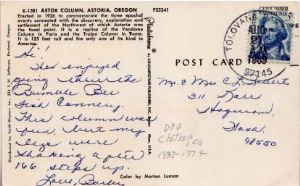 K-1381 ASTOR COLUMN, ASTORIA, OREGON
Erected in 1926 to commemorate the three epochal
events connected with the discovery, exploration and
settlement of the Northwest of which Astoria was the
focal point. It is a replica of the Vendome
Column in Paris and the Trajan Column in Rome.
It is 125 feet tall and the only one of its kind in
America.
P22341
Hi,
Just enjoyed
going thru the
Bumble Bee
Fish Cannery.
This column was
fun, but my
legs were
shaking after
166 steps up.
Love,
POST CARD
TOLOVANA
AUG
1968
97145
Mr & Mrs
311
Hoquiam
Wash.
98550
DPO
Clatsop Co
Color by Morton Luman